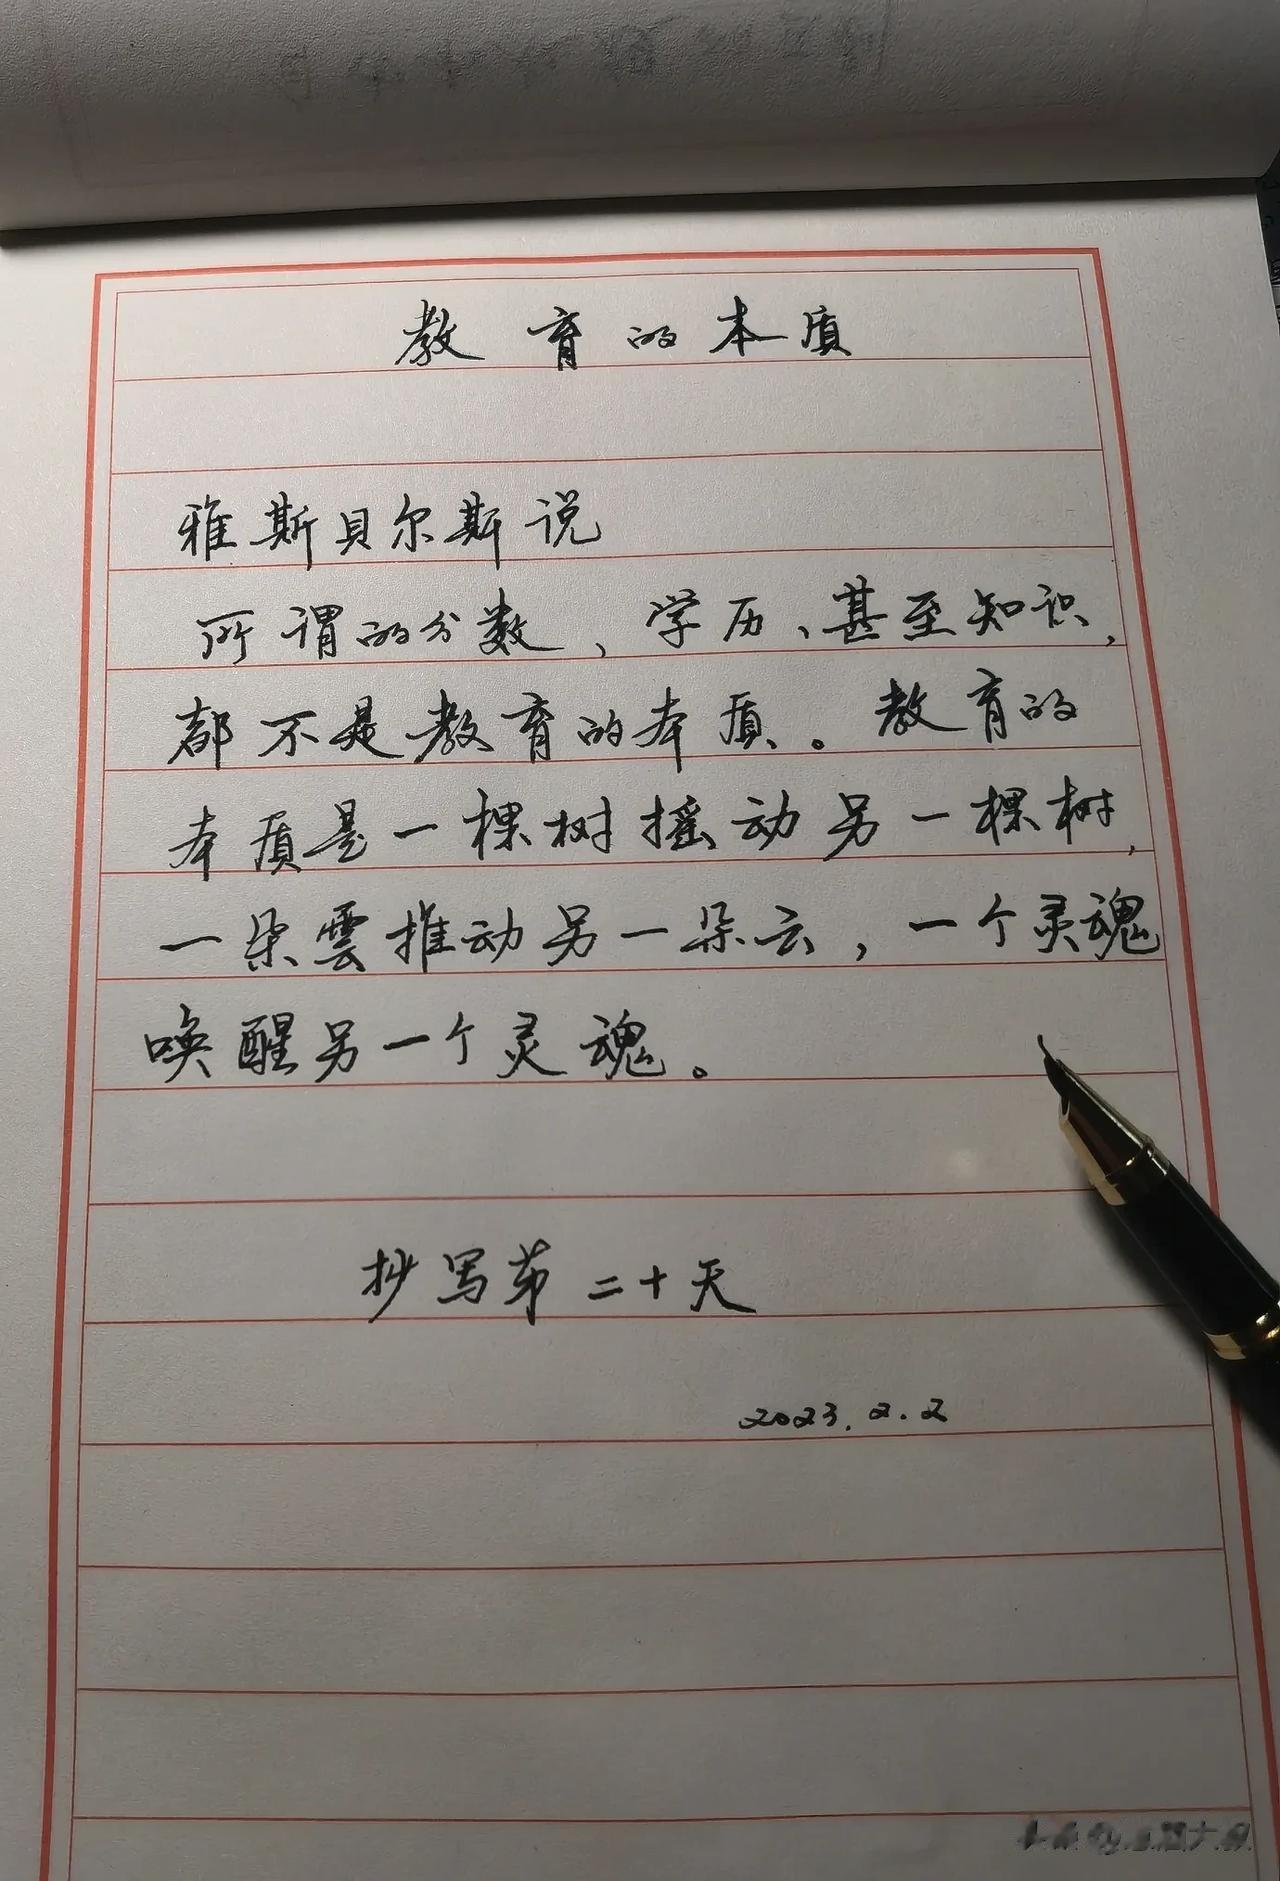 教育的本质
雅斯贝尔斯说
所谓的分数、学历、甚至知识,
都不是教育的本质。教育的
本质是一棵树摇动另一棵树,
一朵雲推动另一朵云,一个灵魂
唤醒另一个灵魂。
抄写第二十天
2023.2.2